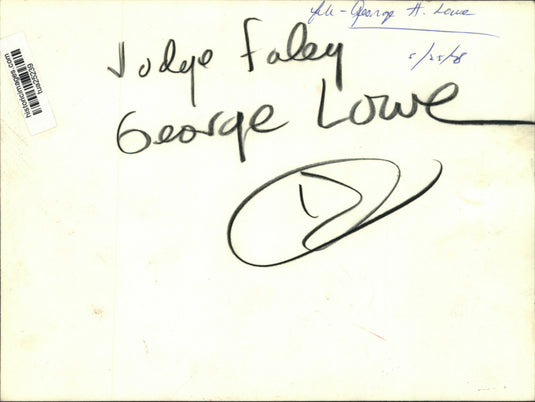 George A. Lowe
5/25/78
Judge Foley
George Lowe
historicimages.com